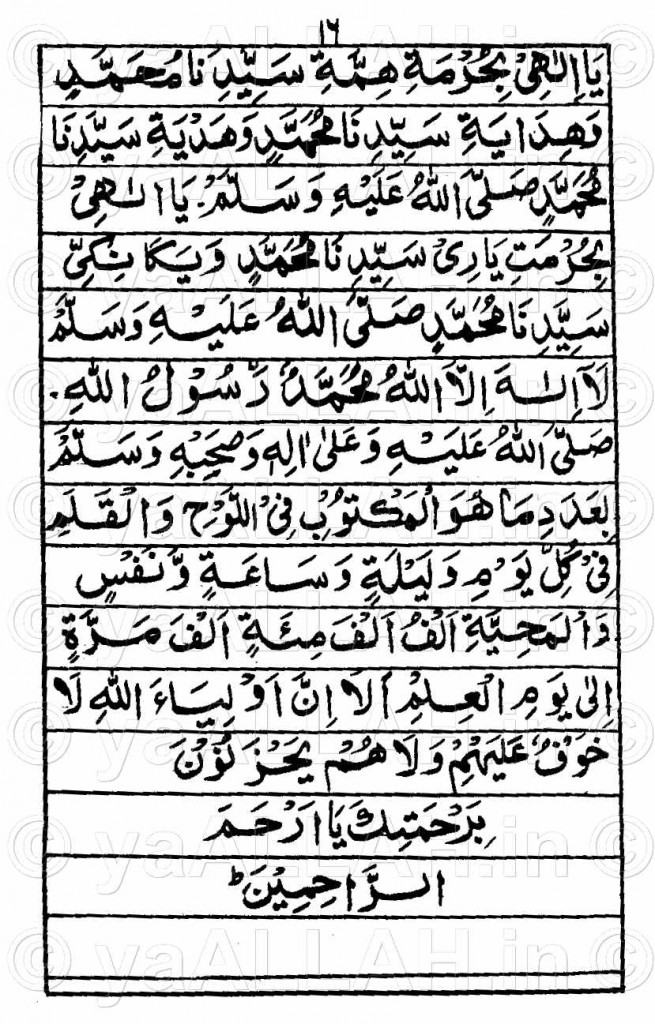 ١٦
يَا اِلٰهِیْ بِحُرْمَةِ هِمَّةِ سَيِّدِنَا مُحَمَّدٍ
وَهِدَايَةِ سَيِّدِنَا مُحَمَّدٍ وَهَدْيَةِ سَيِّدِنَا
مُحَمَّدٍ صَلَّی اللهُ عَلَيْهِ وَسَلَّمْ. يَا اِلٰهِیْ
بِحُرْمَتِ يَارِیْ سَيِّدِنَا مُحَمَّدٍ وَيَكَانِكِیِّ
سَيِّدِنَا مُحَمَّدٍ صَلَّی اللهُ عَلَيْهِ وَسَلَّمْ
لَآ اِلٰهَ اِلَّا اللهُ مُحَمَّدٌ رَّسُوْلُ اللهِ.
صَلَّی اللهُ عَلَيْهِ وَعَلٰی اٰلِهٖ وَصَحْبِهٖ وَسَلَّمْ
بِعَدَدِ مَا هُوَ الْمَكْتُوْبُ فِی اللَّوْحِ وَالْقَلَمِ
فِیْ كُلِّ يَوْمٍ وَلَيْلَةٍ وَسَاعَةٍ وَّنَفْسٍ
وَالْمَحِيَّةِ اَلْفُ اَلْفَ مِئَةٍ اَلْفَ مَرَّةٍ
اِلٰی يَوْمِ الْعِلْمِ اَلَا اِنَّ اَوْلِيَاءَ اللهِ لَا
خَوْفٌ عَلَيْهِمْ وَلَا هُمْ يَحْزَنُوْنَ
بِرَحْمَتِكَ يَا اَرْحَمَ
الرَّاحِمِيْنَ ؕ
© yaALLAH.in ©